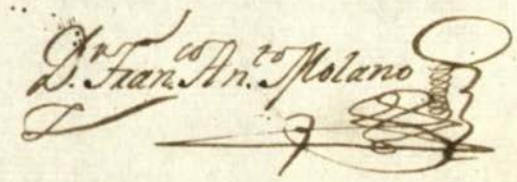 D.ʳ Fran.ᶜᵒ An.ᵗᵒ Molano